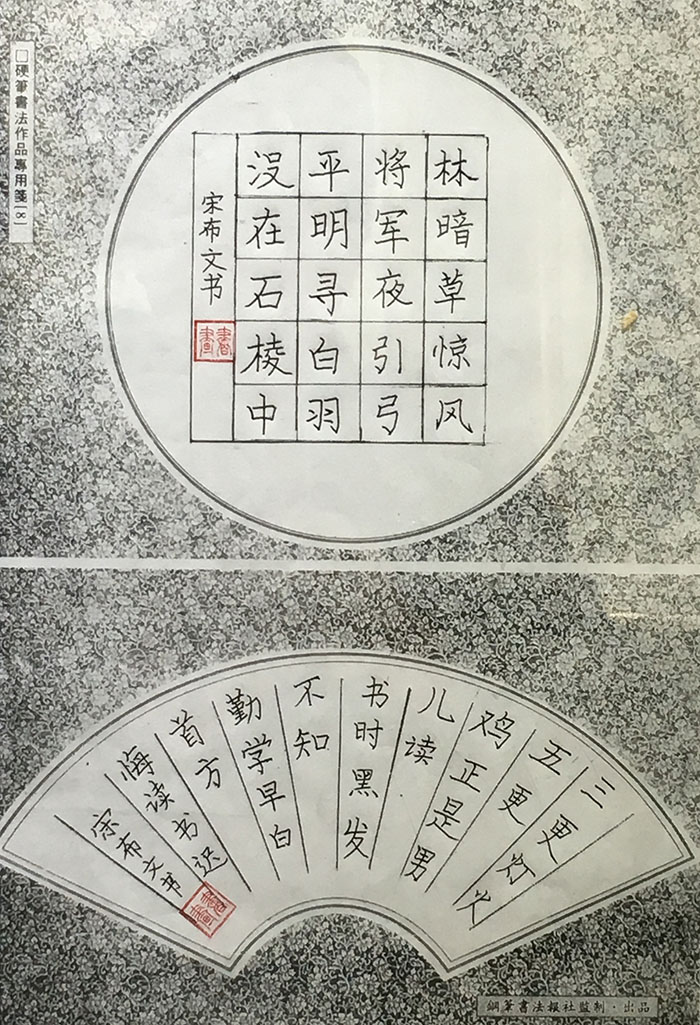 □硬筆書法作品專用箋[∞]
林暗草惊风
将军夜引弓
平明寻白羽
没在石棱中
宋布文书
三更灯火
五更
鸡正是男
儿读
书时黑发
不知
勤学早白
首方
悔读书迟
宋布文书
鋼筆書法報社監制·出品